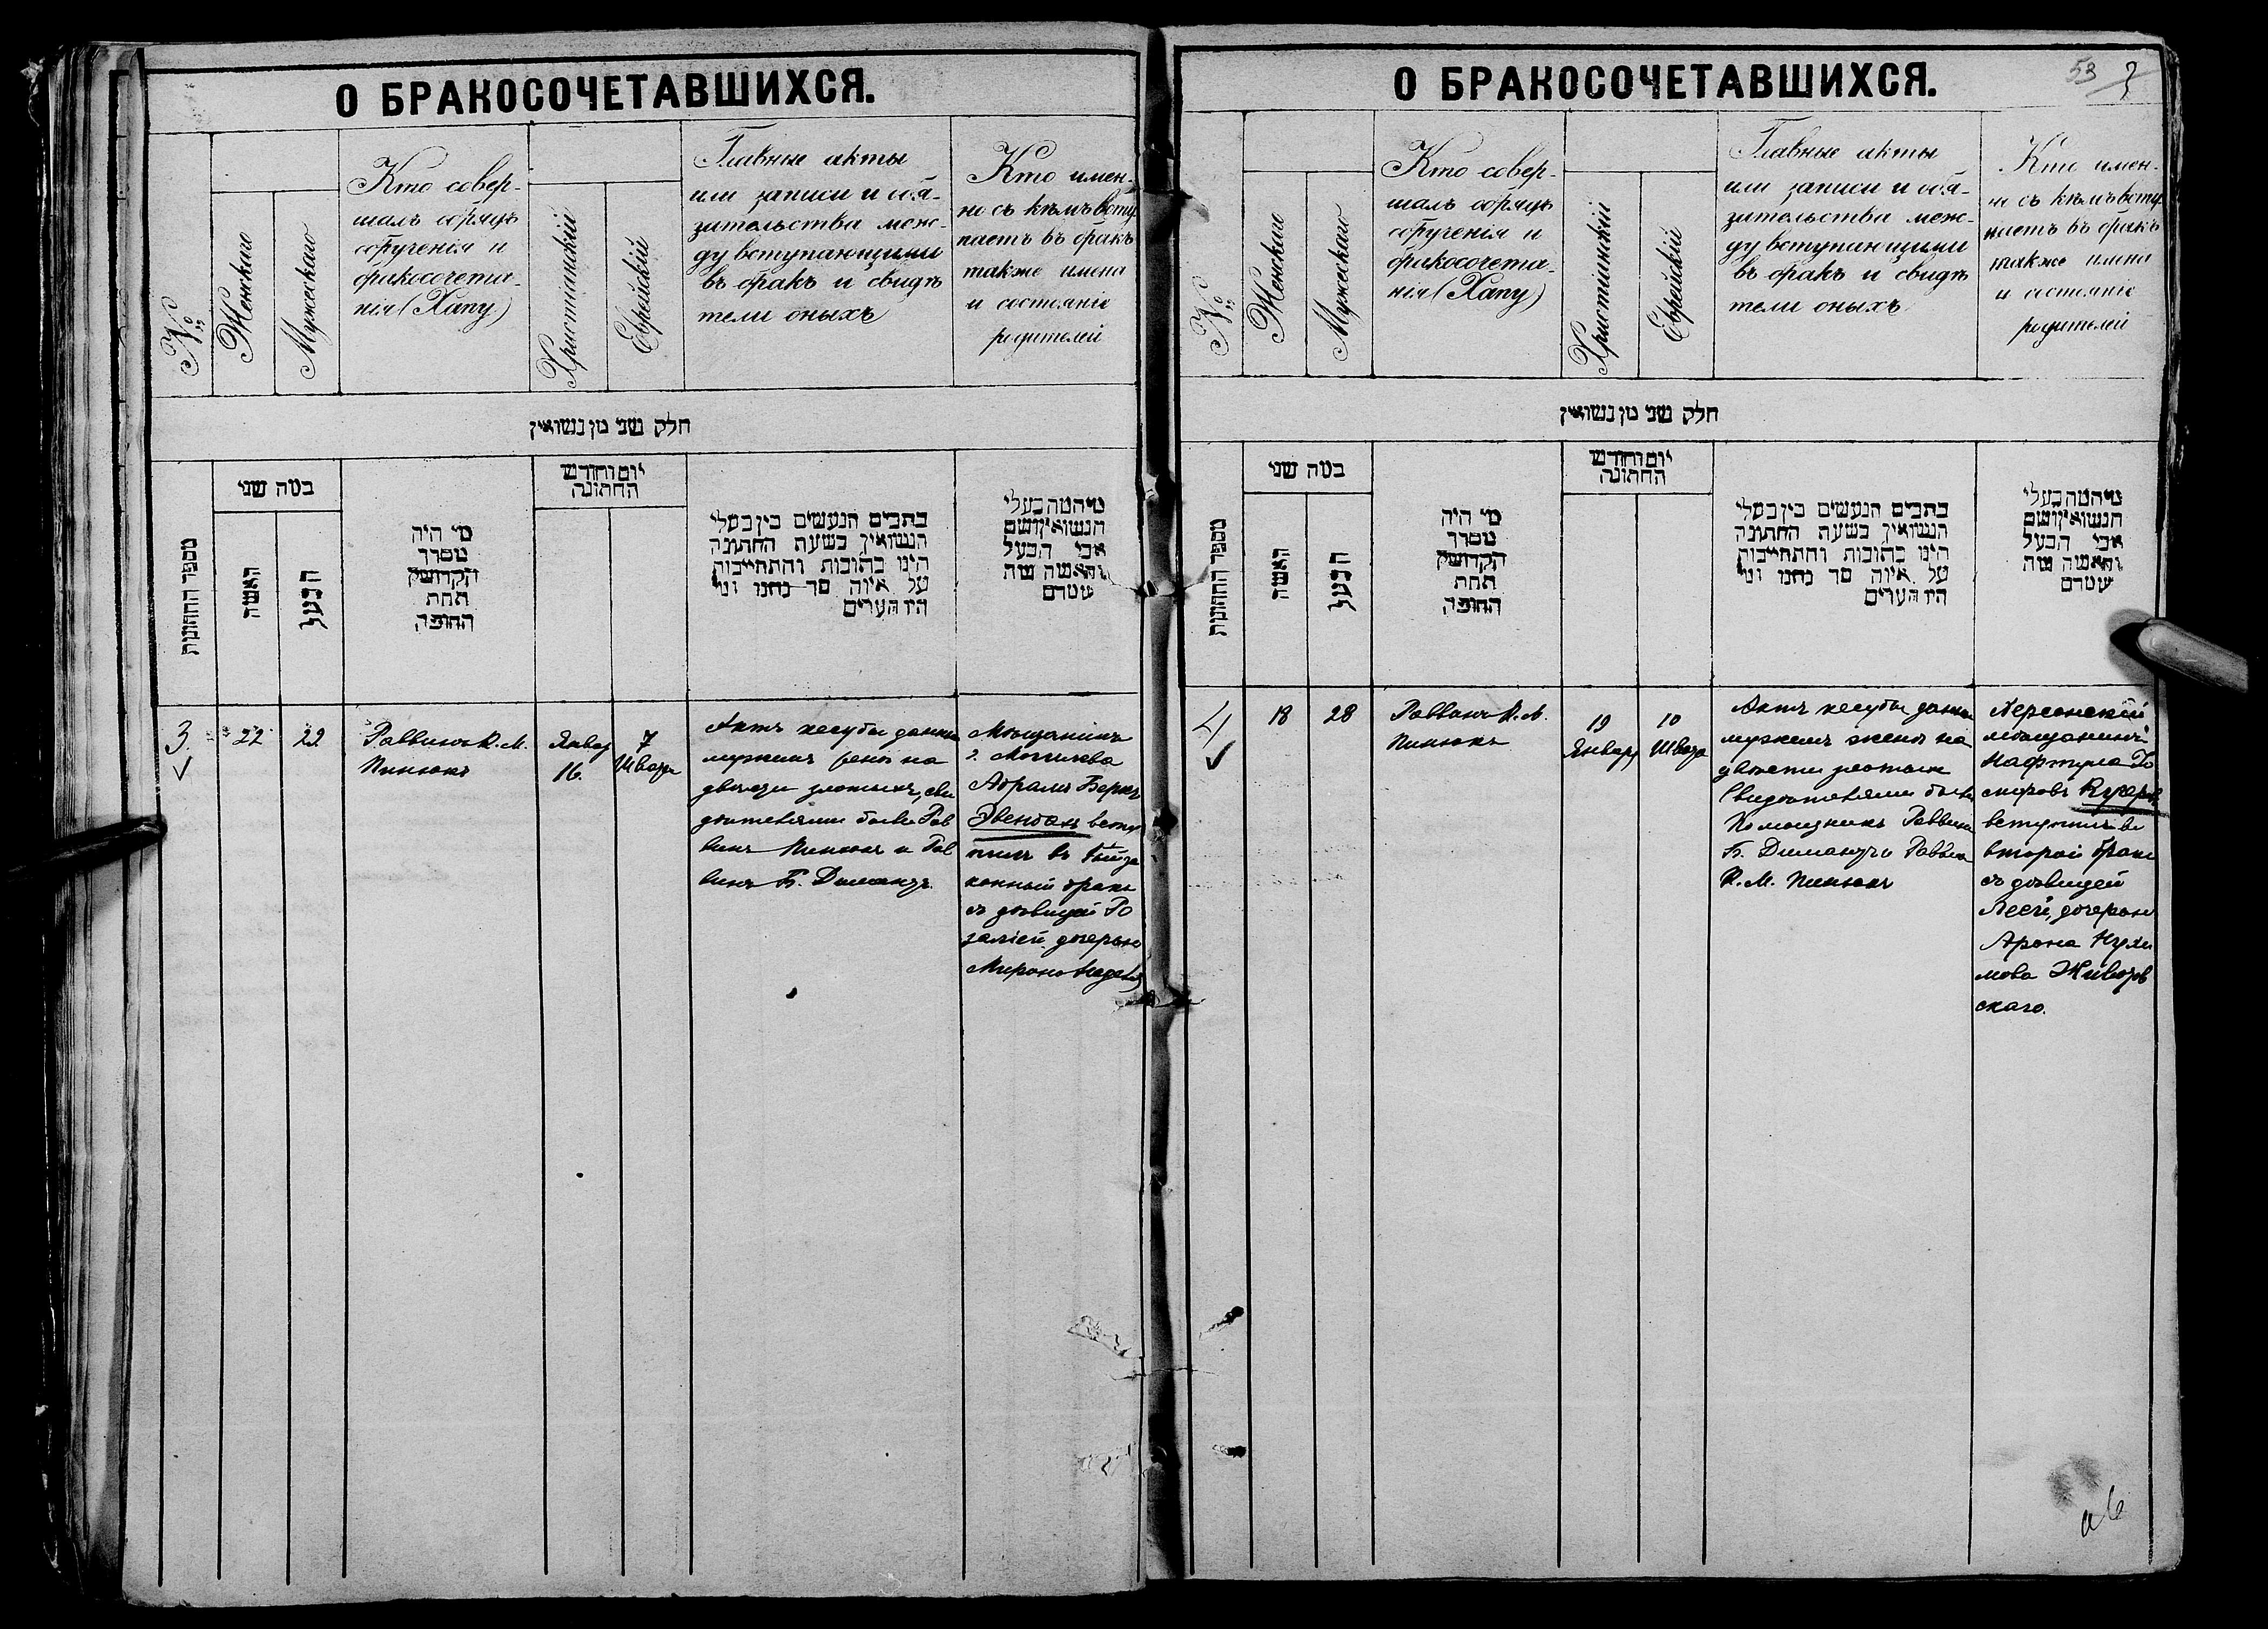 О БРАКОСОЧЕТАВШИХСЯ.
№
Женскаго
Мужескаго
Кто совер-
шалъ обрядъ
обрученія и
бракосочета-
нія (Хапу)
Христіанскій
Еврейскій
Главные акты
или записи и обя-
зательства меж-
ду вступающими
въ бракъ и свидѣ
тели оныхъ
Кто имен-
но съ кѣмъ всту
паетъ въ бракъ
также имена
и состояніе
родителей
חלק שני מן נשואין
מספר החתונות
במה שני
האשה
הבעל
מי היה
מסדר
הקדושין
תחת
החופה
יום וחודש
החתונה
כתבים הנעשים בין בעלי
הנשואין בשעת החתונה
הינו כתובות והתחייבות
על איזה סך נתנו ומי
היו העדים
מי המה בעלי
הנשואין ושם
אבי הבעל
והאשה מה
שמם
3.
22
22
Раввинъ К. М.
Пинюкъ
Январ
16.
7
Швата
Актъ кесубы данъ
мужемъ женѣ на
двѣсти злотыхъ, сви
дѣтелями были Рав
винъ Пинюкъ и Рав
винъ Б. Димантъ.
Мѣщанинъ
г. Могилева
Абрамъ Беркъ
Эвенбахъ всту
пилъ въ
конный бракъ
съ дѣвицей Ро
заліей дочерью
Мирона
О БРАКОСОЧЕТАВШИХСЯ.
53
№
Женскаго
Мужескаго
Кто совер-
шалъ обрядъ
обрученія и
бракосочета-
нія (Хапу)
Христіанскій
Еврейскій
Главные акты
или записи и обя-
зательства меж-
ду вступающими
въ бракъ и свидѣ
тели оныхъ
Кто имен-
но съ кѣмъ всту
паетъ въ бракъ
также имена
и состояніе
родителей
חלק שני מן נשואין
מספר החתונות
במה שני
האשה
הבעל
מי היה
מסדר
הקדושין
תחת
החופה
יום וחודש
החתונה
כתבים הנעשים בין בעלי
הנשואין בשעת החתונה
הינו כתובות והתחייבות
על איזה סך נתנו ומי
היו העדים
מי המה בעלי
הנשואין ושם
אבי הבעל
והאשה מה
שמם
4
18
28
Раввинъ К. М.
Пинюкъ
19
Январь
10
Швата
Актъ кесубы данъ
мужемъ женѣ на
двѣсти злотыхъ
Свидѣтелями были
Помощникъ Раввина
Б. Димантъ и Раввинъ
К. М. Пинюкъ
Херсонскій
мѣщанинъ
Нафтула Іо
сифовъ
вступилъ во
второй бракъ
съ дѣвицей
Лееѣ, дочерью
Арона Нухи
мова Животов
скаго.